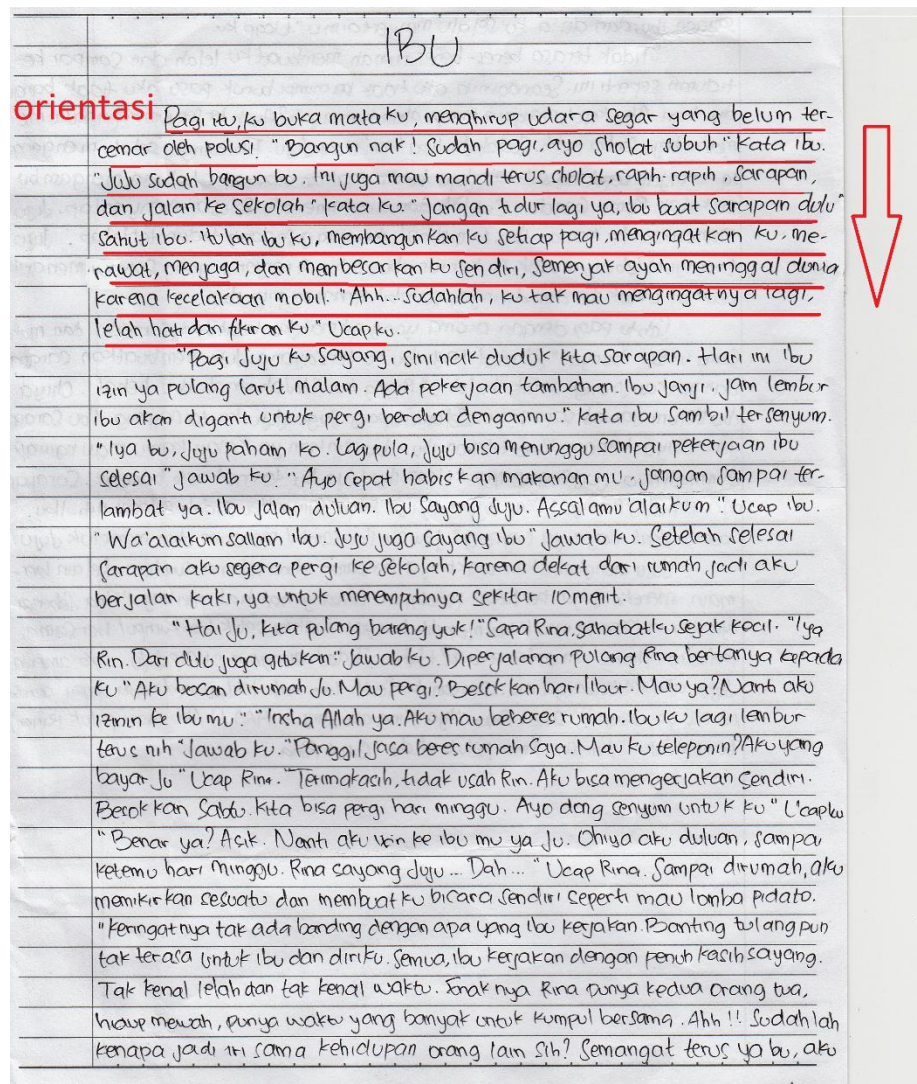 IBU
orientasi
Pagi itu, ku buka mata ku, menghirup udara segar yang belum ter-
cemar oleh polusi. "Bangun nak! Sudah pagi, ayo sholat subuh" kata ibu.
"Juju sudah bangun bu. Ini juga mau mandi terus sholat, rapih-rapih, sarapan,
dan jalan ke sekolah" kata ku. "Jangan tidur lagi ya, ibu buat sarapan dulu"
Sahut ibu. Itulah ibu ku, membangunkan ku setiap pagi, mengingatkan ku, me-
rawat, menjaga, dan membesarkan ku sendiri, semenjak ayah meninggal dunia
karena kecelakaan mobil. "Ahh... Sudahlah, ku tak mau mengingatnya lagi,
lelah hati dan fikiran ku" Ucap ku.
"Pagi Juju ku sayang, sini nak duduk kita sarapan. Hari ini ibu
izin ya pulang larut malam. Ada pekerjaan tambahan. Ibu janji, jam lembur
ibu akan diganti untuk pergi berdua denganmu." kata ibu sambil tersenyum.
"Iya bu, Juju paham ko. Lagi pula, Juju bisa menunggu sampai pekerjaan ibu
selesai" jawab ku. "Ayo cepat habiskan makanan mu, jangan sampai ter-
lambat ya. Ibu jalan duluan. Ibu sayang Juju. Assalamu alaikum" Ucap ibu.
"Wa'alaikum sallam ibu. Juju juga sayang ibu" Jawab ku. Setelah selesai
sarapan aku segera pergi ke sekolah, karena dekat dari rumah jadi aku
berjalan kaki, ya untuk menempuhnya sekitar 10 menit.
"Hai Ju, kita pulang bareng yuk!" Sapa Rina, sahabatku sejak kecil. "Iya
Rin. Dari dulu juga gitu kan" Jawab ku. Diperjalanan pulang Rina bertanya kepada
ku "Aku bosan dirumah Ju. Mau pergi? Besok kan hari libur. Mau ya? Nanti aku
izinin ke ibu mu." "Insha Allah ya. Aku mau beberes rumah. Ibu ku lagi lembur
terus nih" Jawab ku. "Panggil jasa beres rumah saja. Mau ku teleponin? Aku yang
bayar Ju" Ucap Rina. "Terimakasih, tidak usah Rin. Aku bisa mengerjakan sendiri.
Besok kan Sabtu. Kita bisa pergi hari minggu. Ayo dong senyum untuk ku" Ucapku
"Benar ya? Asik. Nanti aku izin ke ibu mu ya Ju. Ohiya aku duluan, sampai
ketemu hari minggu. Rina sayang Juju... Dah..." Ucap Rina. Sampai dirumah, aku
memikirkan sesuatu dan membuat ku bicara sendiri seperti mau lomba pidato.
"keringatnya tak ada banding dengan apa yang ibu kerjakan. Banting tulang pun
tak terasa untuk ibu dan diriku. Semua, ibu kerjakan dengan penuh kasih sayang.
Tak kenal lelah dan tak kenal waktu. Enak nya Rina punya kedua orang tua,
hidup mewah, punya waktu yang banyak untuk kumpul bersama. Ahh!! Sudah lah
kenapa jadi iri sama kehidupan orang lain sih? Semangat terus ya bu, aku